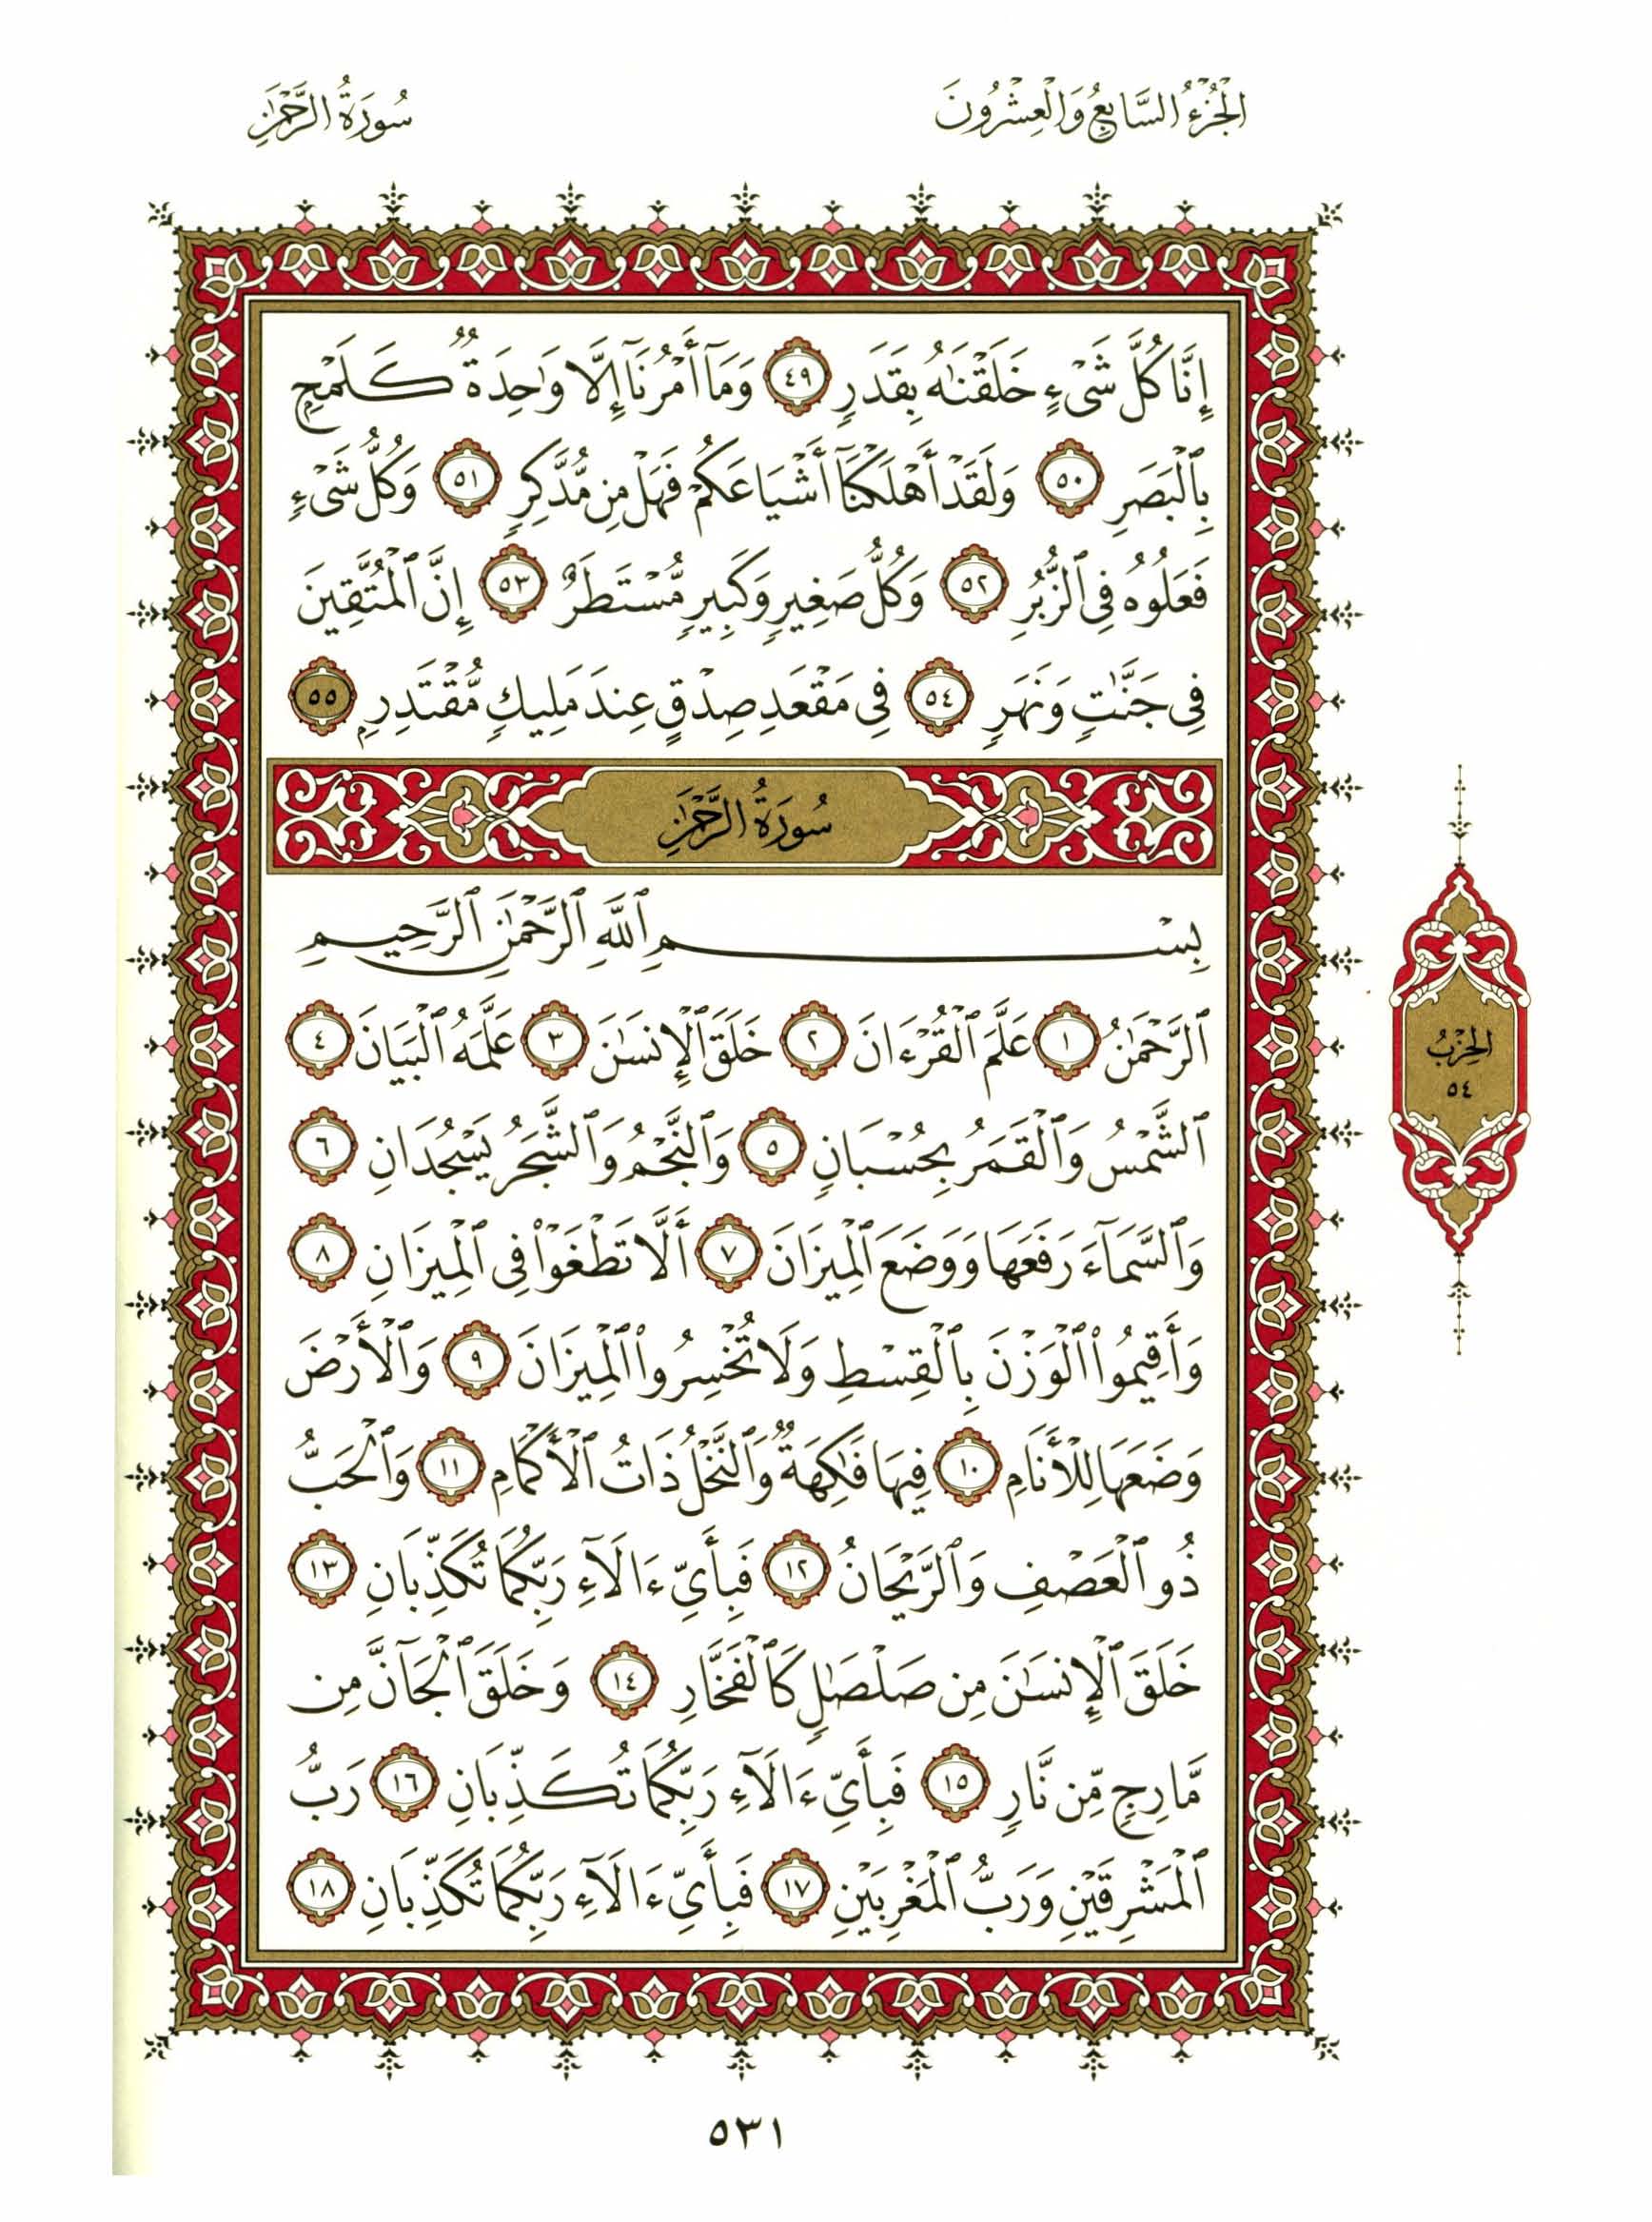 الجُزْءُ السَّابِعُ وَالْعِشْرُونَ
سُورَةُ الرَّحْمَٰن
إِنَّا كُلَّ شَىْءٍ خَلَقْنَٰهُ بِقَدَرٍ ٤٩ وَمَآ أَمْرُنَآ إِلَّا وَٰحِدَةٌ كَلَمْحٍ
بِٱلْبَصَرِ ٥٠ وَلَقَدْ أَهْلَكْنَآ أَشْيَاعَكُمْ فَهَلْ مِن مُّدَّكِرٍ ٥١ وَكُلُّ شَىْءٍ
فَعَلُوهُ فِى ٱلزُّبُرِ ٥٢ وَكُلُّ صَغِيرٍ وَكَبِيرٍ مُّسْتَطَرٌ ٥٣ إِنَّ ٱلْمُتَّقِينَ
فِى جَنَّٰتٍ وَنَهَرٍ ٥٤ فِى مَقْعَدِ صِدْقٍ عِندَ مَلِيكٍ مُّقْتَدِرٍ ٥٥
سُورَةُ الرَّحْمَٰن
بِسْمِ ٱللَّهِ ٱلرَّحْمَٰنِ ٱلرَّحِيمِ
ٱلرَّحْمَٰنُ ١ عَلَّمَ ٱلْقُرْءَانَ ٢ خَلَقَ ٱلْإِنسَٰنَ ٣ عَلَّمَهُ ٱلْبَيَانَ ٤
ٱلشَّمْسُ وَٱلْقَمَرُ بِحُسْبَانٍ ٥ وَٱلنَّجْمُ وَٱلشَّجَرُ يَسْجُدَانِ ٦
وَٱلسَّمَآءَ رَفَعَهَا وَوَضَعَ ٱلْمِيزَانَ ٧ أَلَّا تَطْغَوْا۟ فِى ٱلْمِيزَانِ ٨
وَأَقِيمُوا۟ ٱلْوَزْنَ بِٱلْقِسْطِ وَلَا تُخْسِرُوا۟ ٱلْمِيزَانَ ٩ وَٱلْأَرْضَ
وَضَعَهَا لِلْأَنَامِ ١٠ فِيهَا فَٰكِهَةٌ وَٱلنَّخْلُ ذَاتُ ٱلْأَكْمَامِ ١١ وَٱلْحَبُّ
ذُو ٱلْعَصْفِ وَٱلرَّيْحَانُ ١٢ فَبِأَىِّ ءَالَآءِ رَبِّكُمَا تُكَذِّبَانِ ١٣
خَلَقَ ٱلْإِنسَٰنَ مِن صَلْصَٰلٍ كَٱلْفَخَّارِ ١٤ وَخَلَقَ ٱلْجَآنَّ مِن
مَّارِجٍ مِّن نَّارٍ ١٥ فَبِأَىِّ ءَالَآءِ رَبِّكُمَا تُكَذِّبَانِ ١٦ رَبُّ
ٱلْمَشْرِقَيْنِ وَرَبُّ ٱلْمَغْرِبَيْنِ ١٧ فَبِأَىِّ ءَالَآءِ رَبِّكُمَا تُكَذِّبَانِ ١٨
الحِزْبُ
٥٤
٥٣١